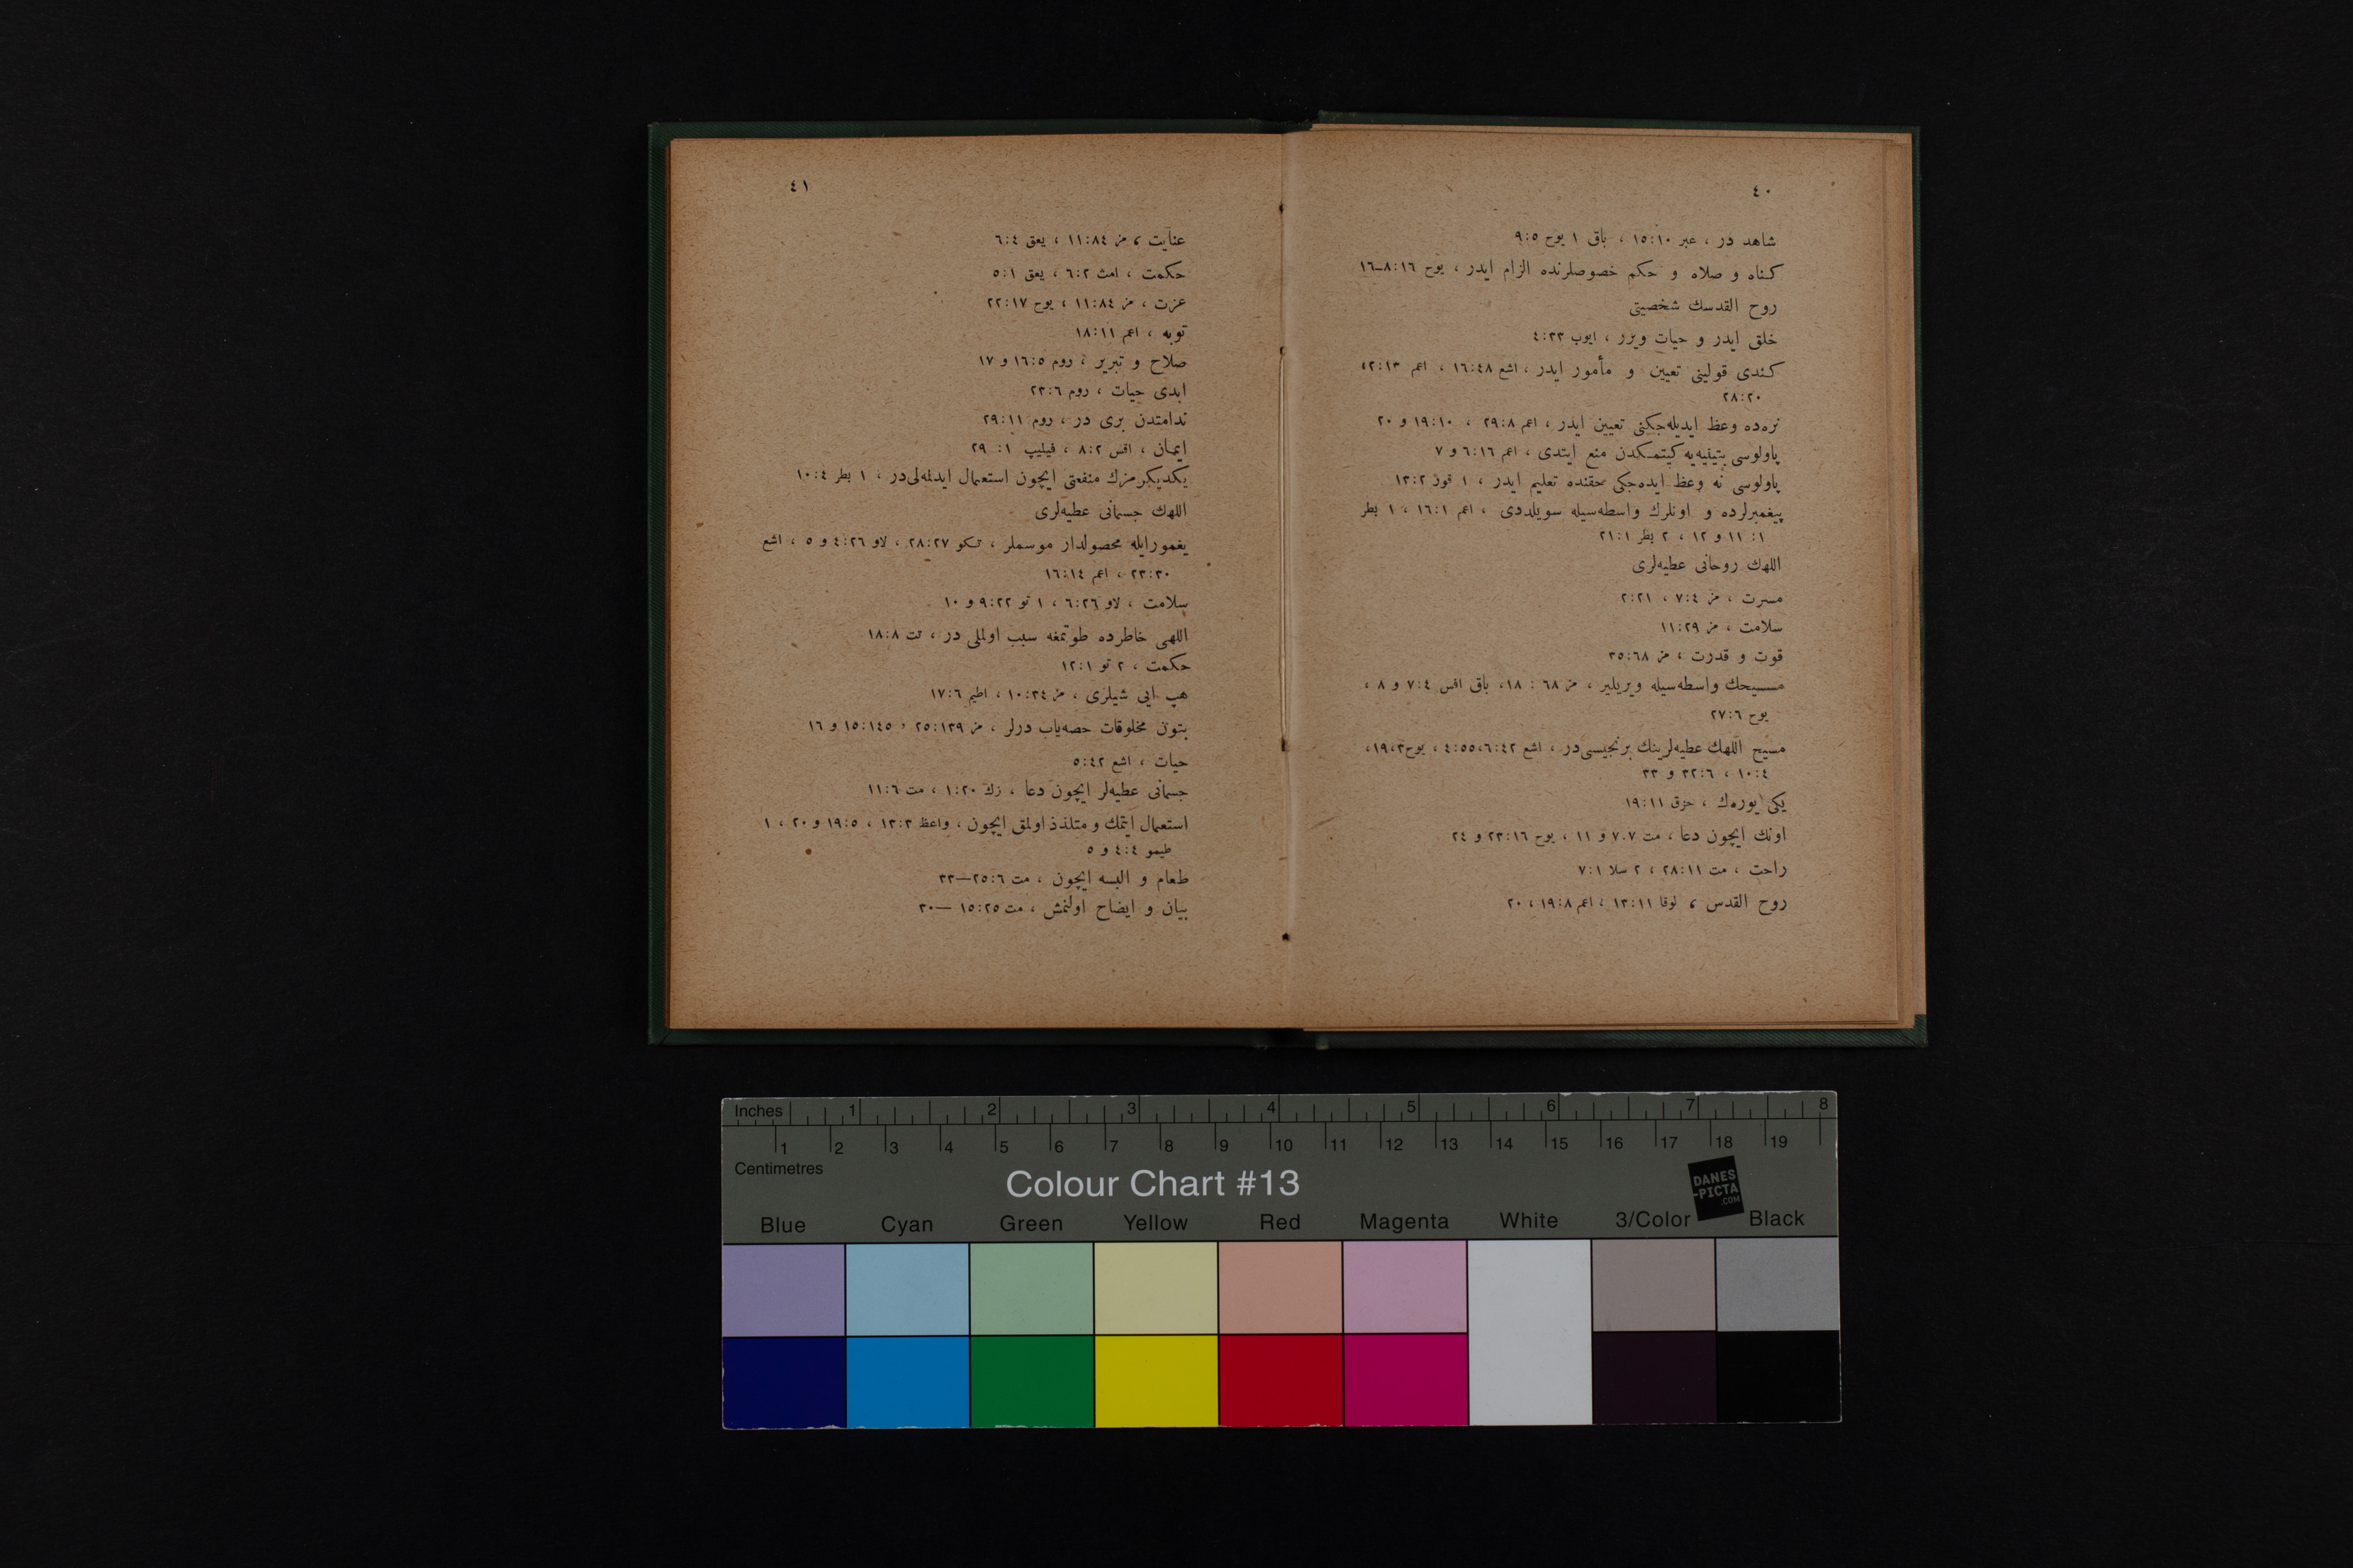 ٤٠
شاهد در ، عبر ١٥:١٠ ، باق ١ يوح ٩:٥
كناه و صلاه و حكم خصوصلرنده الزام ايدر ، يوح ٨:١٦ــ١٦
روح القدسك شخصيتى
خلق ايدر و حيات ويرر ، ايوب ٤:٣٣
كندى قولينى تعيين و مأمور ايدر ، اشع ١٦:٤٨ ، اعم ٢:١٣،
٢٨:٢٠
نره‌ده وعظ ايديله‌جكنى تعيين ايدر ، اعم ٢٩:٨ ، ١٩:١٠ و ٢٠
پاولوسى بتينيه‌يه كيتمكدن منع ايتدى ، اعم ٦:١٦ و ٧
پاولوسى نه وعظ ايده‌جكى حقنده تعليم ايدر ، ١ قور ١٣:٢
پيغمبرلرده و اونلرك واسطه‌سيله سويلددى ، اعم ١٦:١ ، ١ بطر
١: ١١ و ١٢ ، ٢ بطر ٢١:١
اللهك روحانى عطيه‌لرى
مسرت ، مز ٧:٤ ، ٢:٢١
سلامت ، مز ١١:٢٩
قوت و قدرت ، مز ٣٥:٦٨
مسيحك واسطه‌سيله ويريلير ، مز ٦٨ : ١٨، باق افس ٧:٤ و ٨ ،
يوح ٢٧:٦
مسيح اللهك عطيه‌لرينك برنجيسى‌در ، اشع ٦:٤٢،٤:٥٥ ، يوح ٣،١٩،
١٠:٤ ، ٣٢:٦ و ٣٣
يكى يوره‌ك ، حزق ١٩:١١
اونك ايچون دعا ، مت ٧.٧ و ١١ ، يوح ٢٣:١٦ و ٢٤
راحت ، مت ٢٨:١١ ، ٢ سلا ٧:١
روح القدس ، لوقا ١٣:١١ ، اعم ١٩:٨ ، ٢٠
٤١
عنايت ، مز ١١:٨٤ ، يعق ٦:٤
حكمت ، امث ٦:٢ ، يعق ٥:١
عزت ، مز ١١:٨٤ ، يوح ٢٢:١٧
توبه ، اعم ١٨:١١
صلاح و تبرير ، روم ١٦:٥ و ١٧
ابدى حيات ، روم ٢٣:٦
ندامتدن برى در ، روم ٢٩:١١
ايمان ، افس ٨:٢ ، فيليپ ١: ٢٩
يكديكرمزك منفعتى ايچون استعمال ايدلمه‌لى‌در ، ١ بطر ١٠:٤
اللهك جسمانى عطيه‌لرى
يغمورايله محصولدار موسملر ، تكو ٢٨:٢٧ ، لاو ٤:٢٦ و ٥ ، اشع
٢٣:٣٠ ، اعم ١٦:١٤
سلامت ، لاو ٦:٢٦ ، ١ تو ٩:٢٢ و ١٠
اللهى خاطرده طوتمغه سبب اولملى در ، تث ١٨:٨
حكمت ، ٢ تو ١٢:١
هپ ايى شيلرى ، مز ١٠:٣٤ ، اطيم ١٧:٦
بتون مخلوقات حصه‌ياب درلر ، مز ٢٥:١٣٩ ، ١٥:١٤٥ و ١٦
حيات ، اشع ٥:٤٢
جسمانى عطيه‌لر ايچون دعا ، زك ١:٢٠ ، مت ١١:٦
استعمال ايتمك و متلذذ اولمق ايچون ، واعظ ١٣:٣ ، ١٩:٥ و ٢٠ ، ١
طيمو ٤:٤ و ٥
طعام و البسه ايچون ، مت ٢٥:٦—٣٣
بيان و ايضاح اولنمش ، مت ١٥:٢٥ —٣٠
Inches 1 2 3 4 5 6 7 8
1 2 3 4 5 6 7 8 9 10 11 12 13 14 15 16 17 18 19
Centimetres
Colour Chart #13
DANES
-PICTA
.COM
Blue Cyan Green Yellow Red Magenta White 3/Color Black